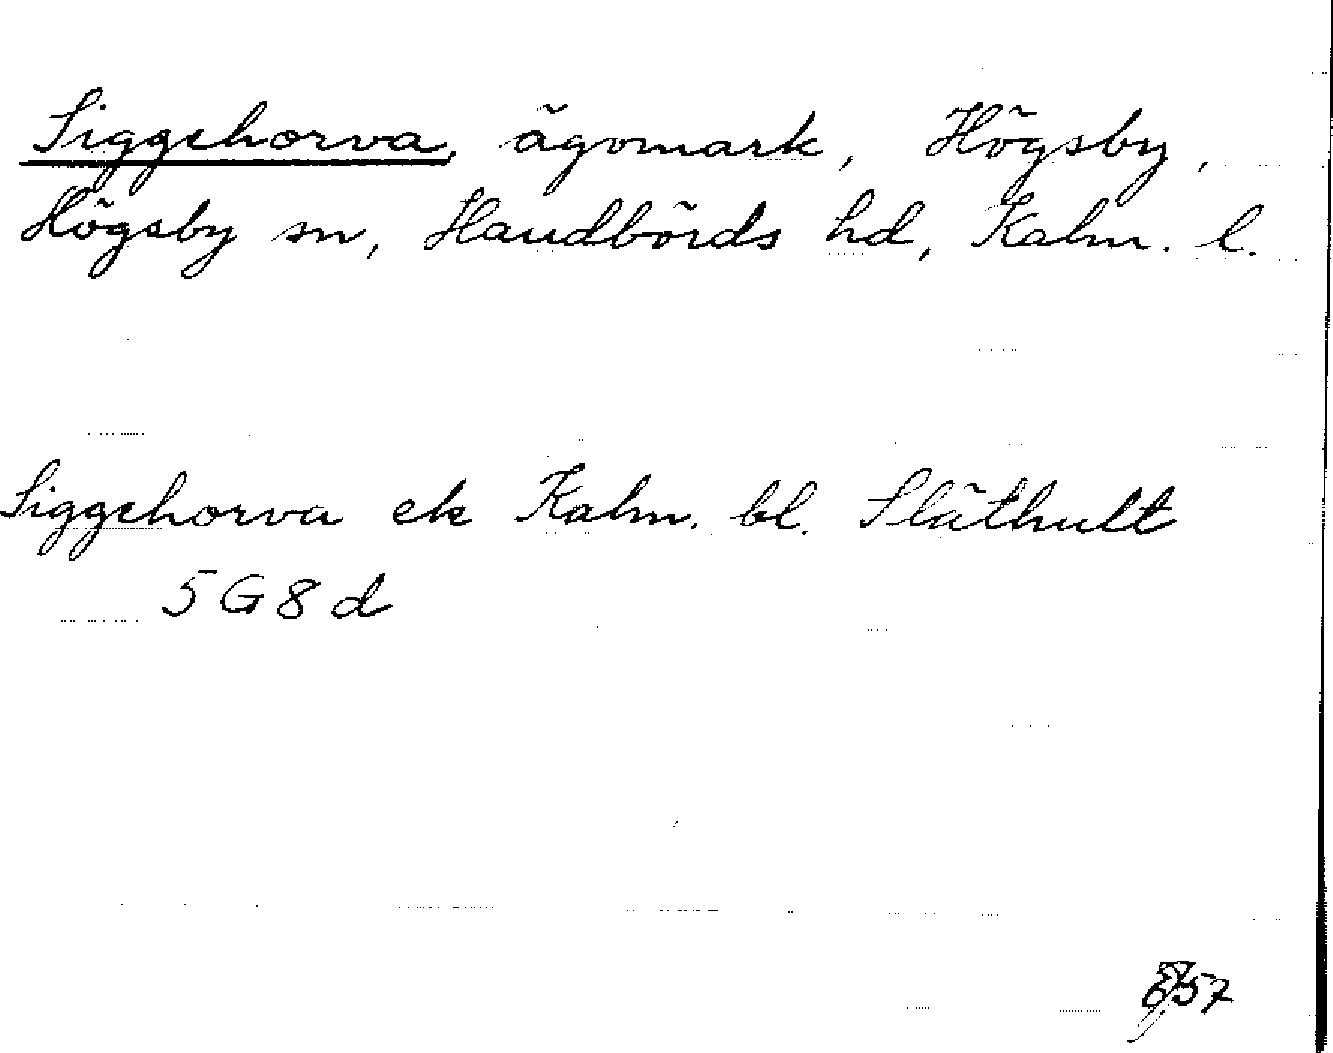 Siggehorva, ägomark, Högsby,
Högsby sn, Handbörds hd, Kalm. l.
Siggehorva ek Kalm. bl. Släthult
5 G 8 d